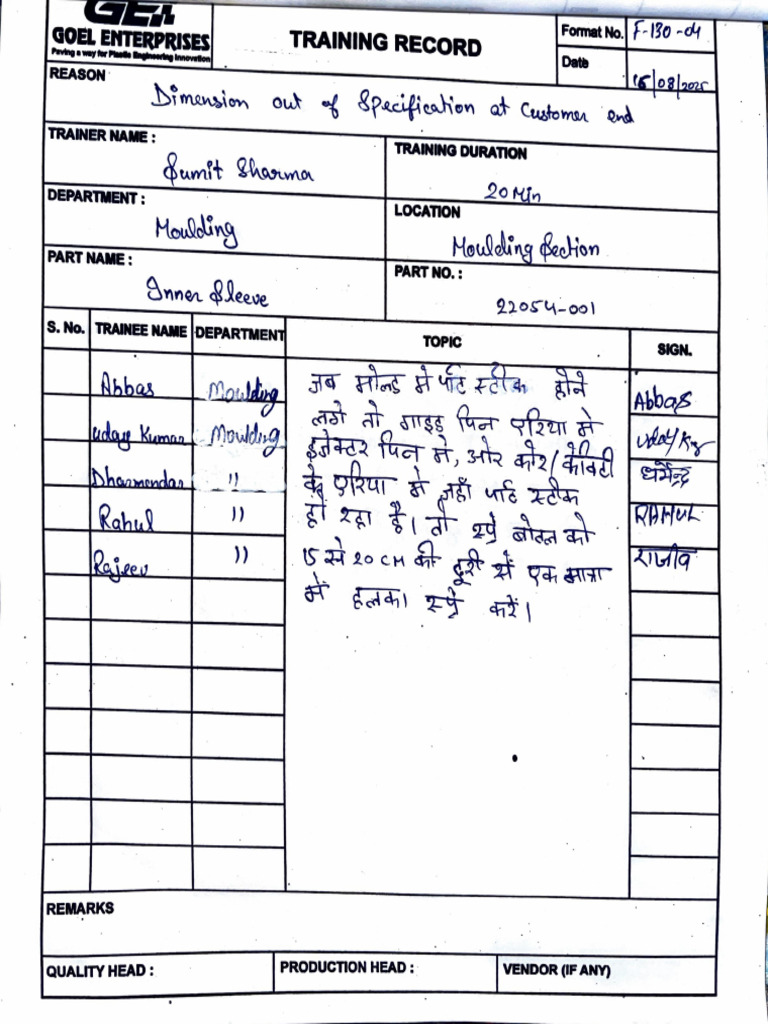 GEn
GOEL ENTERPRISES
Paving a way for Plastic Engineering Innovation
TRAINING RECORD
Format No. F-130-04
Date 15/08/2025
REASON
Dimension out of Specification at Customer end
TRAINER NAME :
Sumit Sharma
TRAINING DURATION
20 Min
DEPARTMENT :
Moulding
LOCATION
Moulding Section
PART NAME :
Inner Sleeve
PART NO. :
22054-001
S. No. TRAINEE NAME DEPARTMENT TOPIC SIGN.
Abbas Moulding Abbas
Uday Kumar Moulding
Dharmendar " धर्मेन्द्र
Rahul " RAHUL
Rajeev " राजीव
जब मोल्ड मे पार्ट स्टीक होने
लगे तो गाइड पिन एरिया मे
इजेक्टर पिन मे, ओर कोर/केविटी
के एरिया मे जहाँ पार्ट स्टीक
हो रहा है। तो स्प्रे बोतल को
15 से 20 CM की दूरी से एक मात्रा
में हलका स्प्रे करें।
REMARKS
QUALITY HEAD : PRODUCTION HEAD : VENDOR (IF ANY)